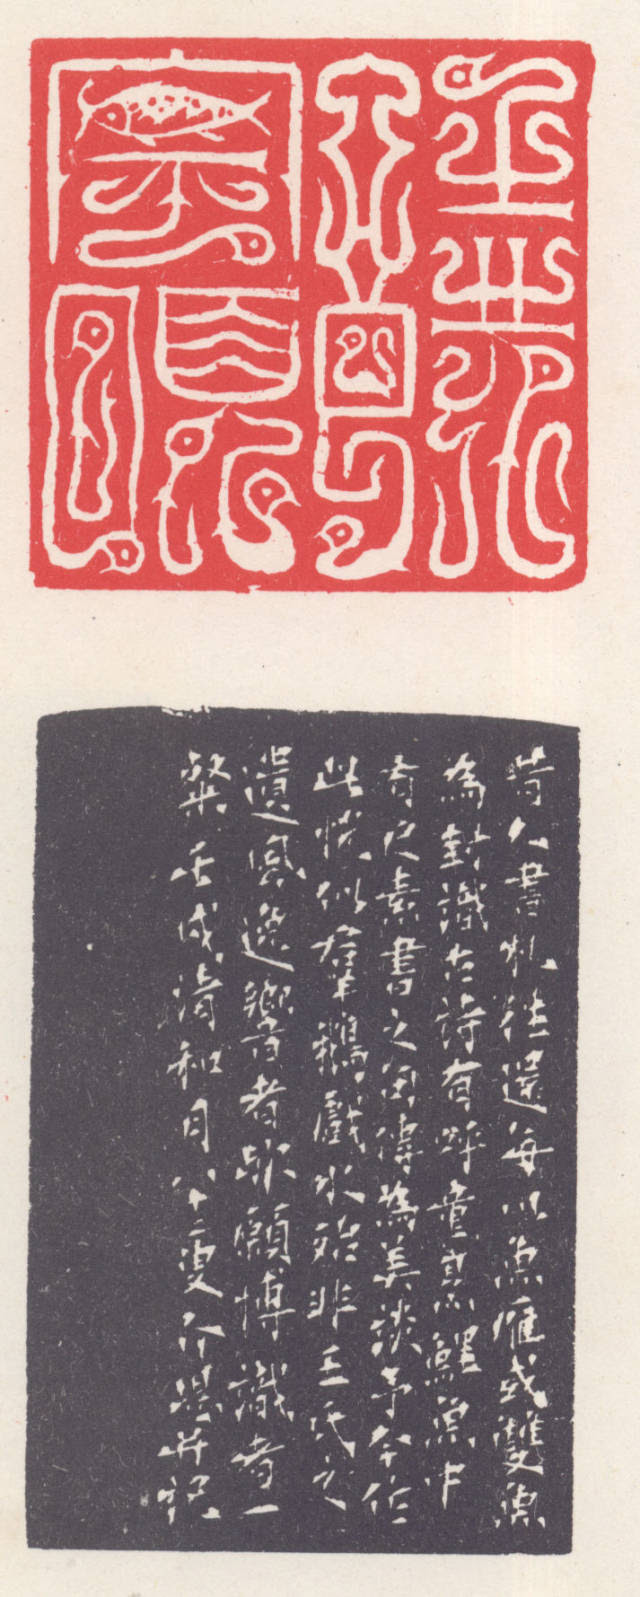 昔人書札往還每以魚雁或雙魚
為封識古詩有呼童烹鯉魚中
有尺素書之句傳為美談予今作
此恍似羣鵝戲水殆非王氏之
遺風逸響者歟願博識者一
粲壬戌清和月八十二叟介堪并記